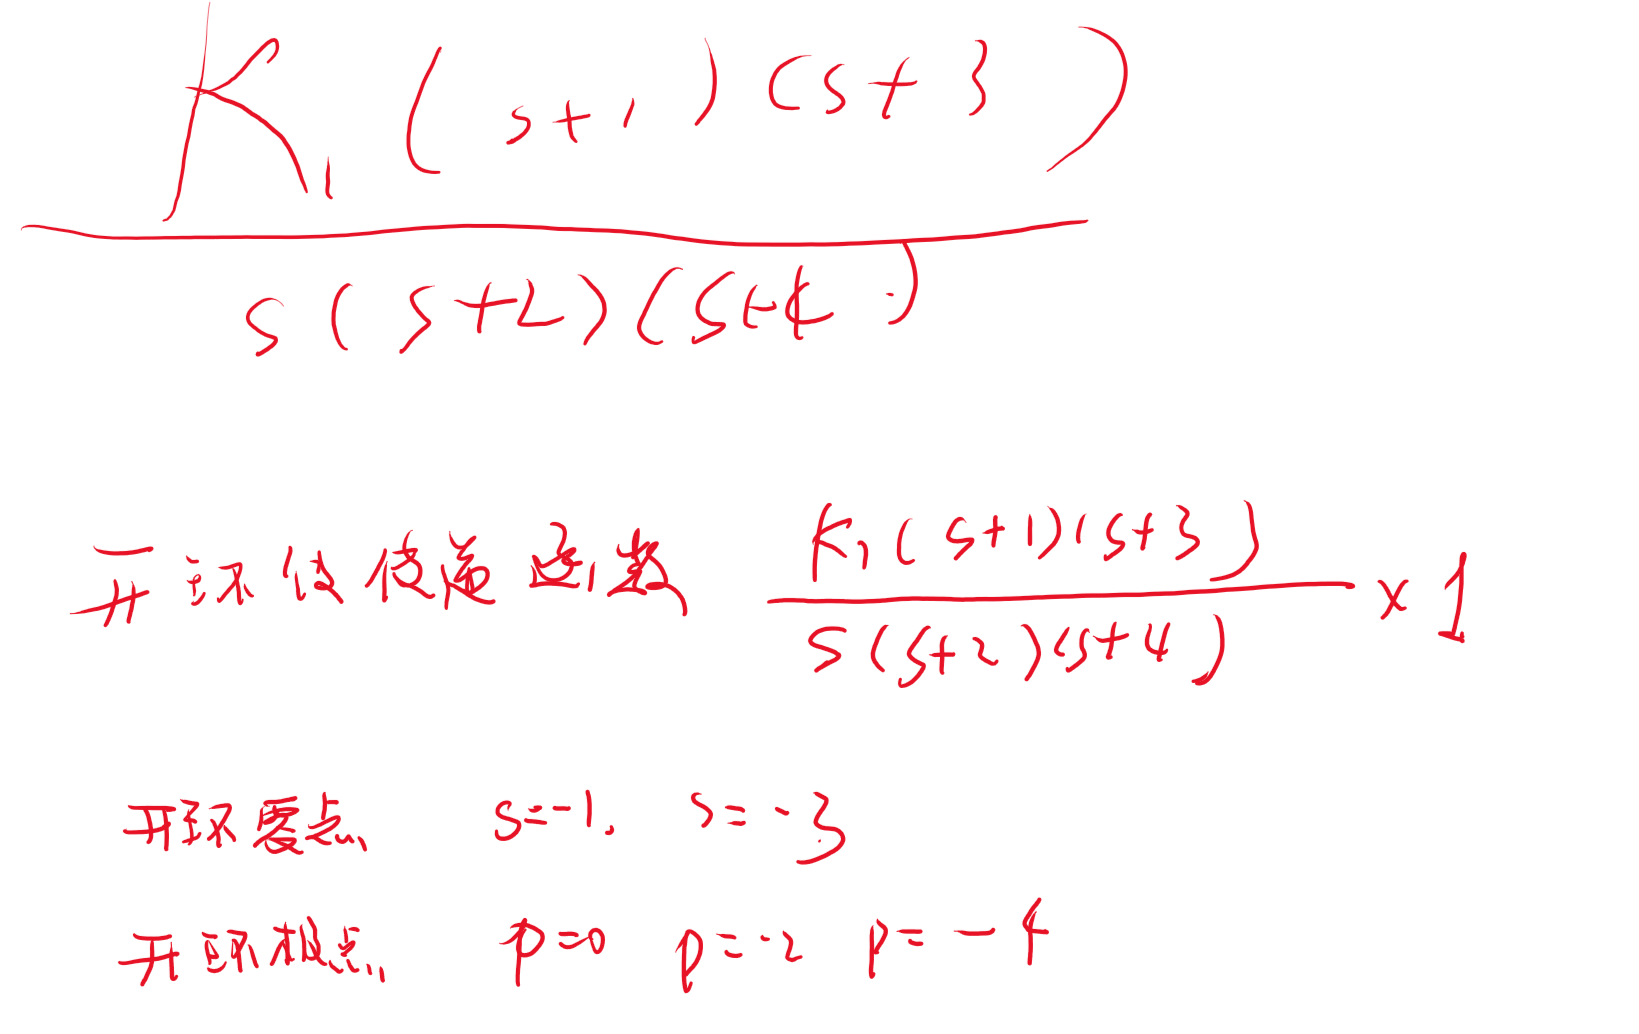 K₁(s+1)(s+3)
s(s+2)(s+4)
开环传传递函数 K₁(s+1)(s+3) / s(s+2)(s+4) × 1
开环零点 s=-1, s=-3
开环极点 p=0 p=-2 p=-4